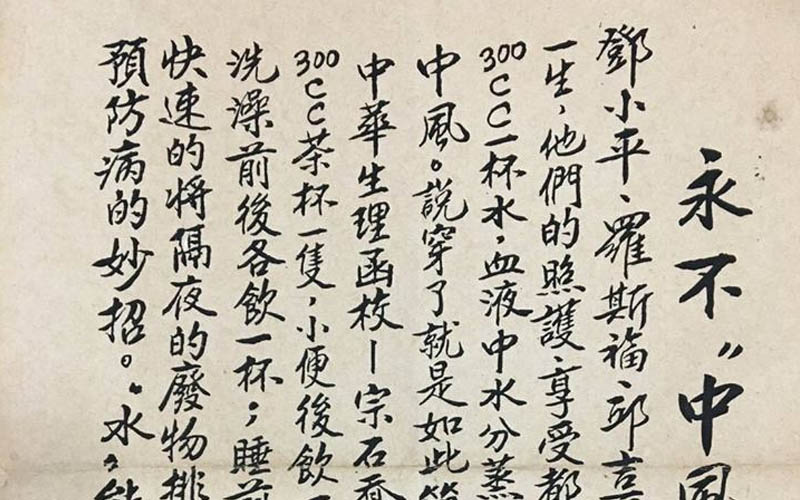 永不“中風
鄧小平、羅斯福、邱吉
一生,他們的照護、享受都
300CC一杯水,血液中水分蒸
中風。說穿了就是如此簡
中華生理函校—宗石
300CC茶杯一隻,小便後飲一
洗澡前後各飲一杯;睡前
快速的將隔夜的廢物排
預防病的妙招。“水”能